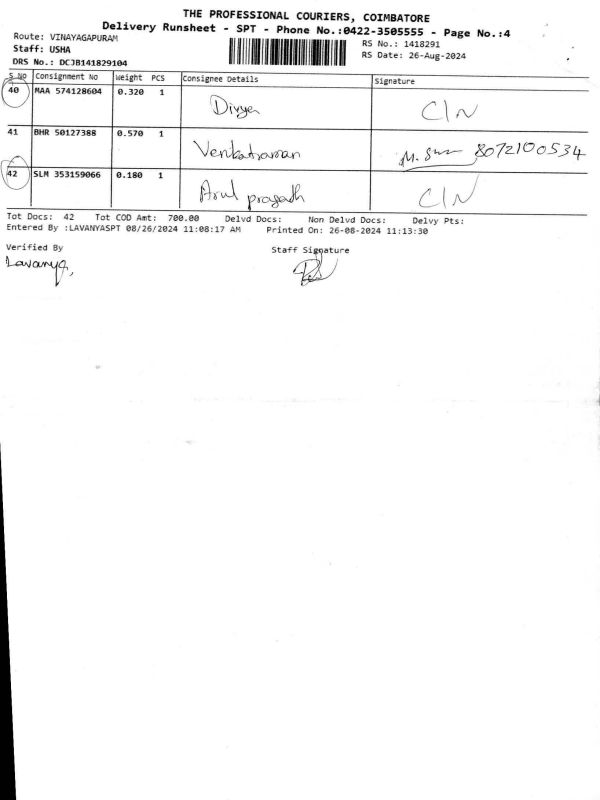 THE PROFESSIONAL COURIERS, COIMBATORE
Delivery Runsheet - SPT - Phone No.:0422-3505555 - Page No.:4
Route: VINAYAGAPURAM
RS No.: 1418291
Staff: USHA
RS Date: 26-Aug-2024
DRS No.: DCJB141829104
S.No Consignment No Weight PCS Consignee Details Signature
40 MAA 574128604 0.320 1 Divya C/N
41 BHR 50127388 0.570 1 Venkatraman M. 8072100534
42 SLM 353159066 0.180 1 Arul prasadh C/N
Tot Docs: 42 Tot COD Amt: 700.00 Delvd Docs: Non Delvd Docs: Delvy Pts:
Entered By :LAVANYASPT 08/26/2024 11:08:17 AM Printed On: 26-08-2024 11:13:30
Verified By Staff Signature
Lavanya,